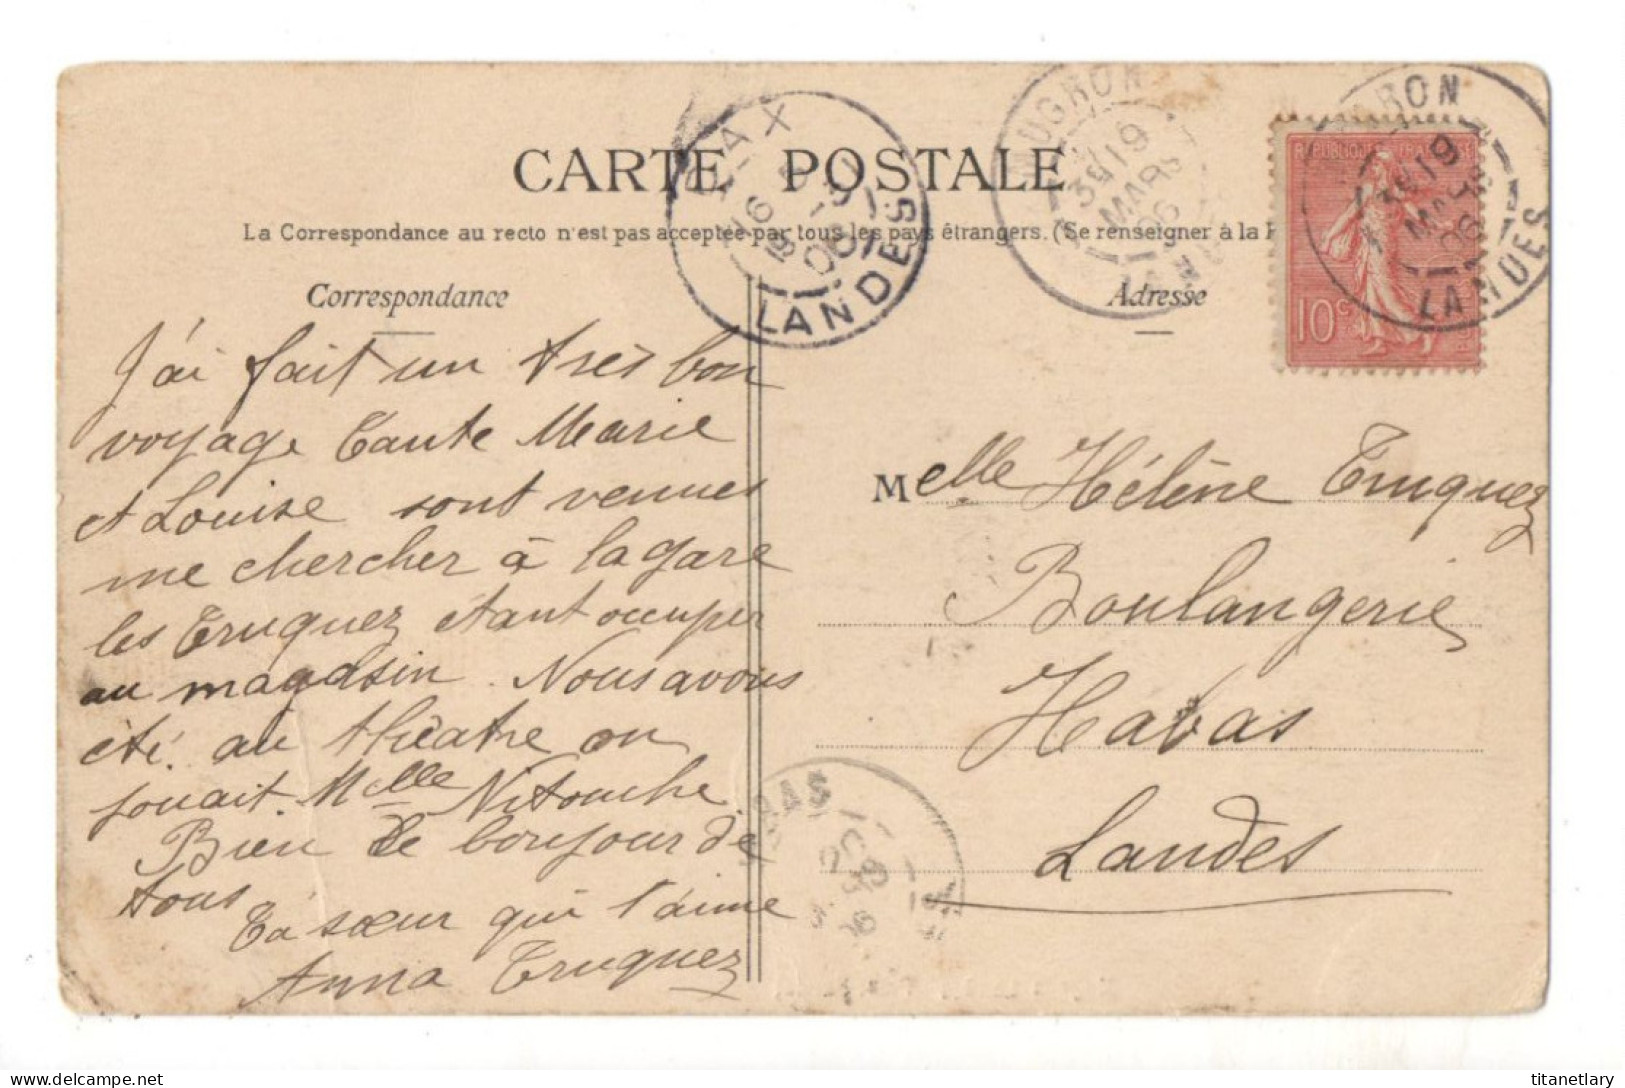 CARTE POSTALE
La Correspondance au recto n'est pas acceptée par tous les pays étrangers. (Se renseigner à la
Correspondance
Adresse
J'ai fait un très bon
voyage Tante Marie
et Louise sont venues
me chercher à la gare
les Truquez étant occuper
au magasin. Nous avons
été. au théatre on
jouait Melle Nitouche.
Bien de bonjour de
tous
Ta sœur qui t'aime
Anna Truquez
Melle Hélène Truquez
Boulangerie
Habas
Landes
DAX
LANDES
MUGRON
19
MARS
06
LANDES
RÉPUBLIQUE FRANÇAISE
10c
19
MARS
06
LANDES
titanetlary